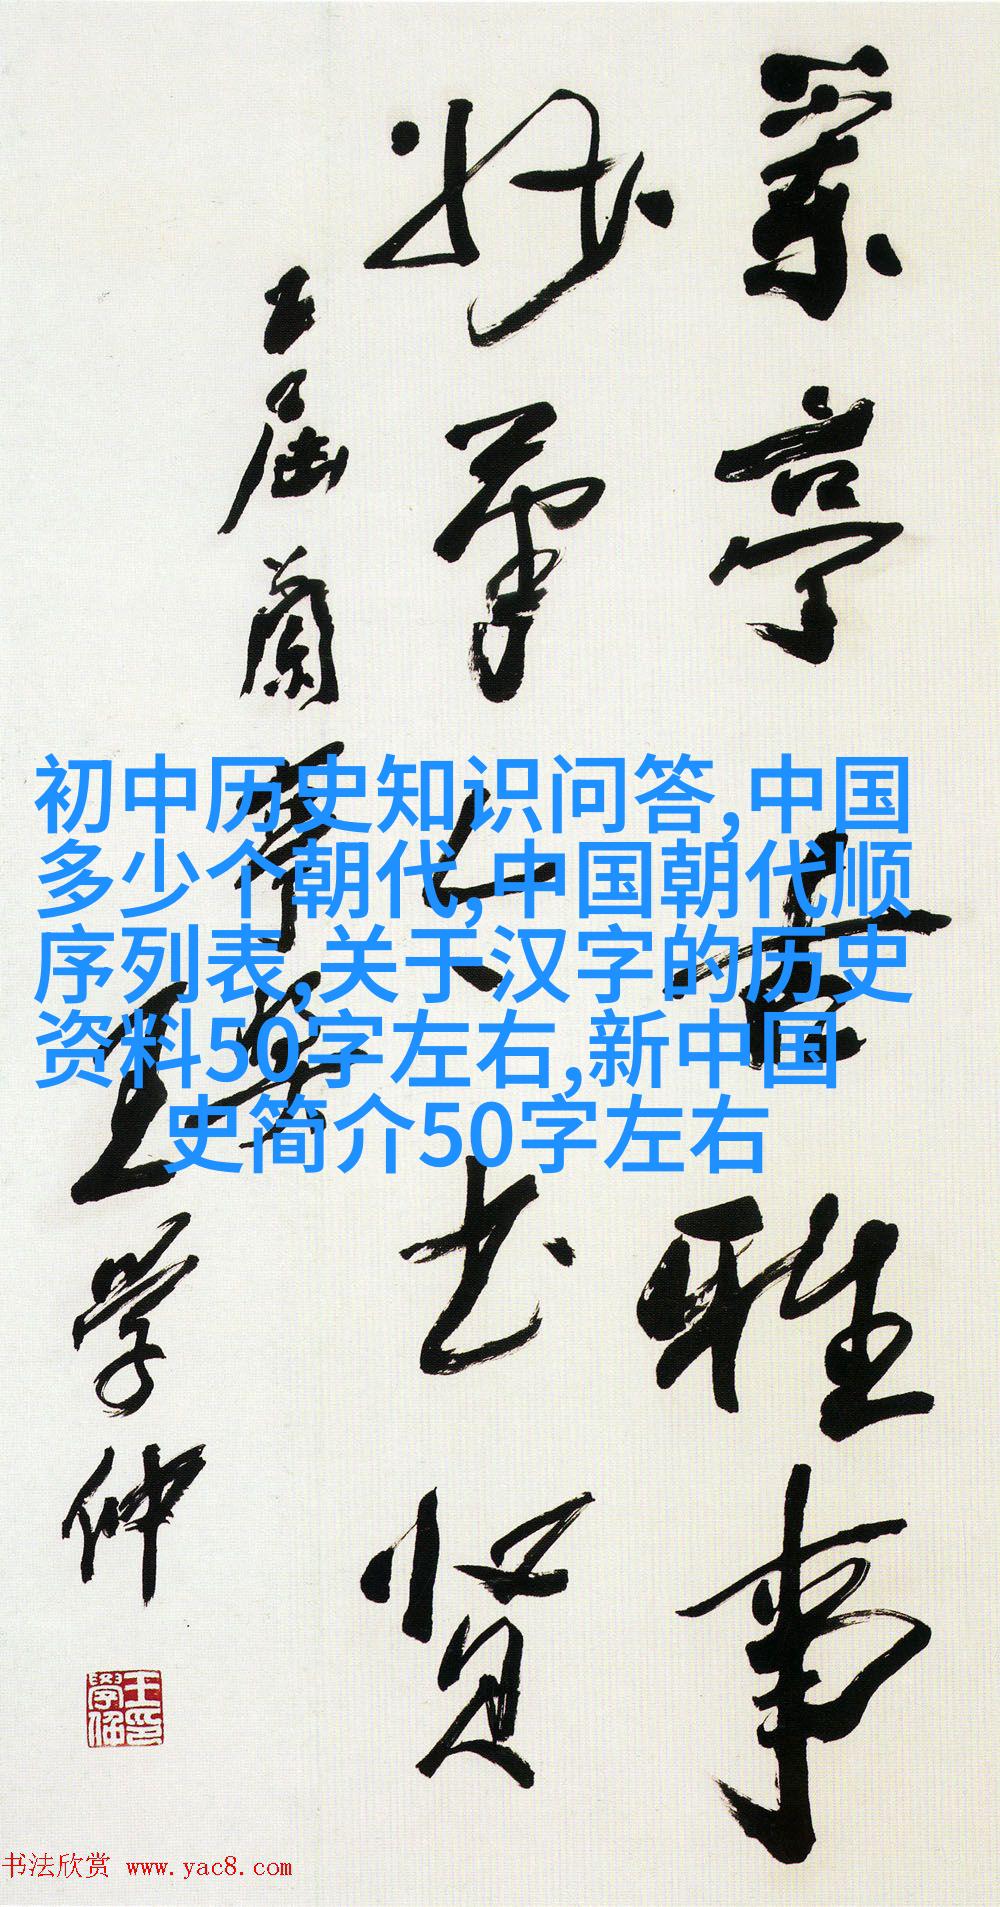 亭
雅事
书贤
五届蘭亭
王学仲
王學仲印
初中历史知识问答,中国
多少个朝代,中国朝代顺
序列表,关于汉字的历史
资料50字左右,新中国
史简介50字左右
书法欣赏 www.yac8.com